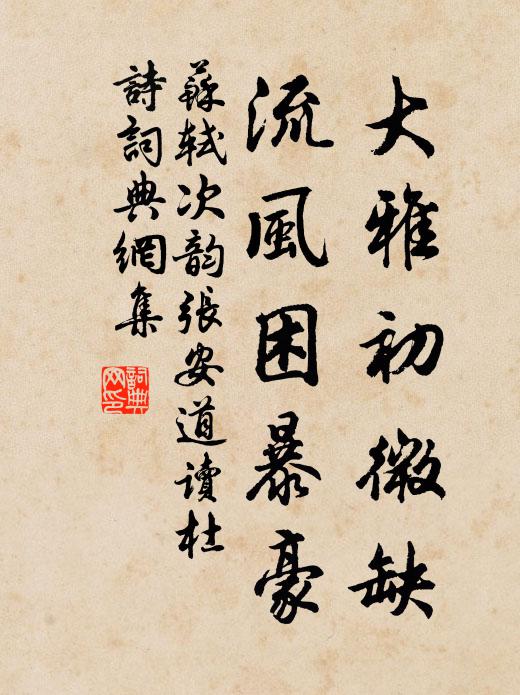 大雅初微缺
流風困暴豪
蘇軾次韵張安道讀杜
詩詞典網集
詞典网印